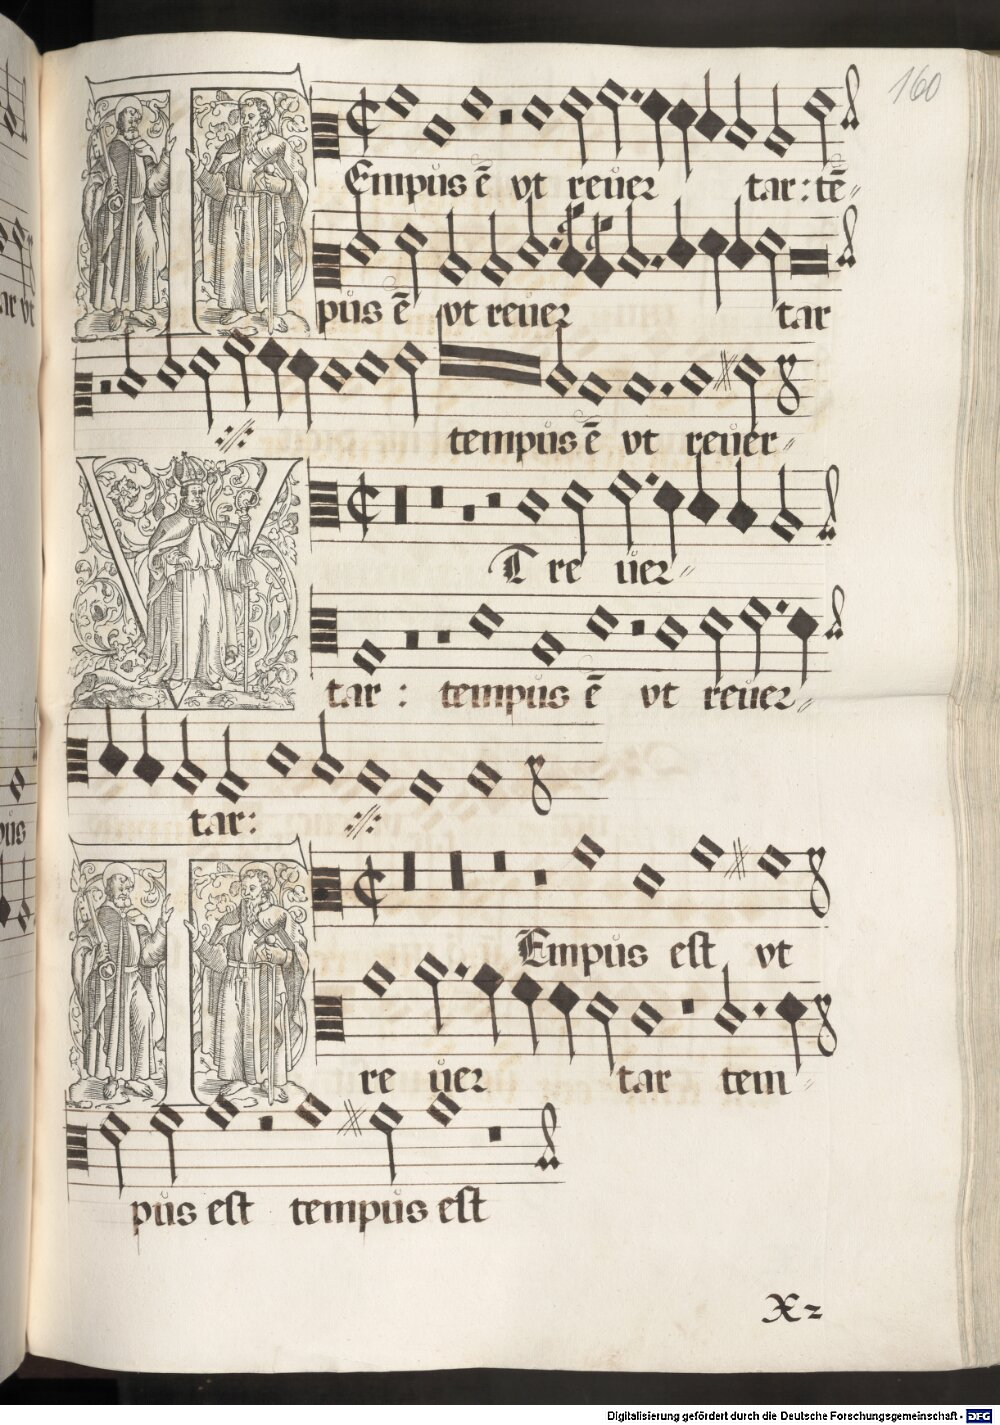 160
TEmpus ē vt reuer tar: tē
pus ē vt reuer tar
tempus ē vt reuer
VT reuer
tar: tempus ē vt reuer
tar:
TEmpus est vt
re uer tar tem
pus est tempus est
X2
Digitalisierung gefördert durch die Deutsche Forschungsgemeinschaft - DFG